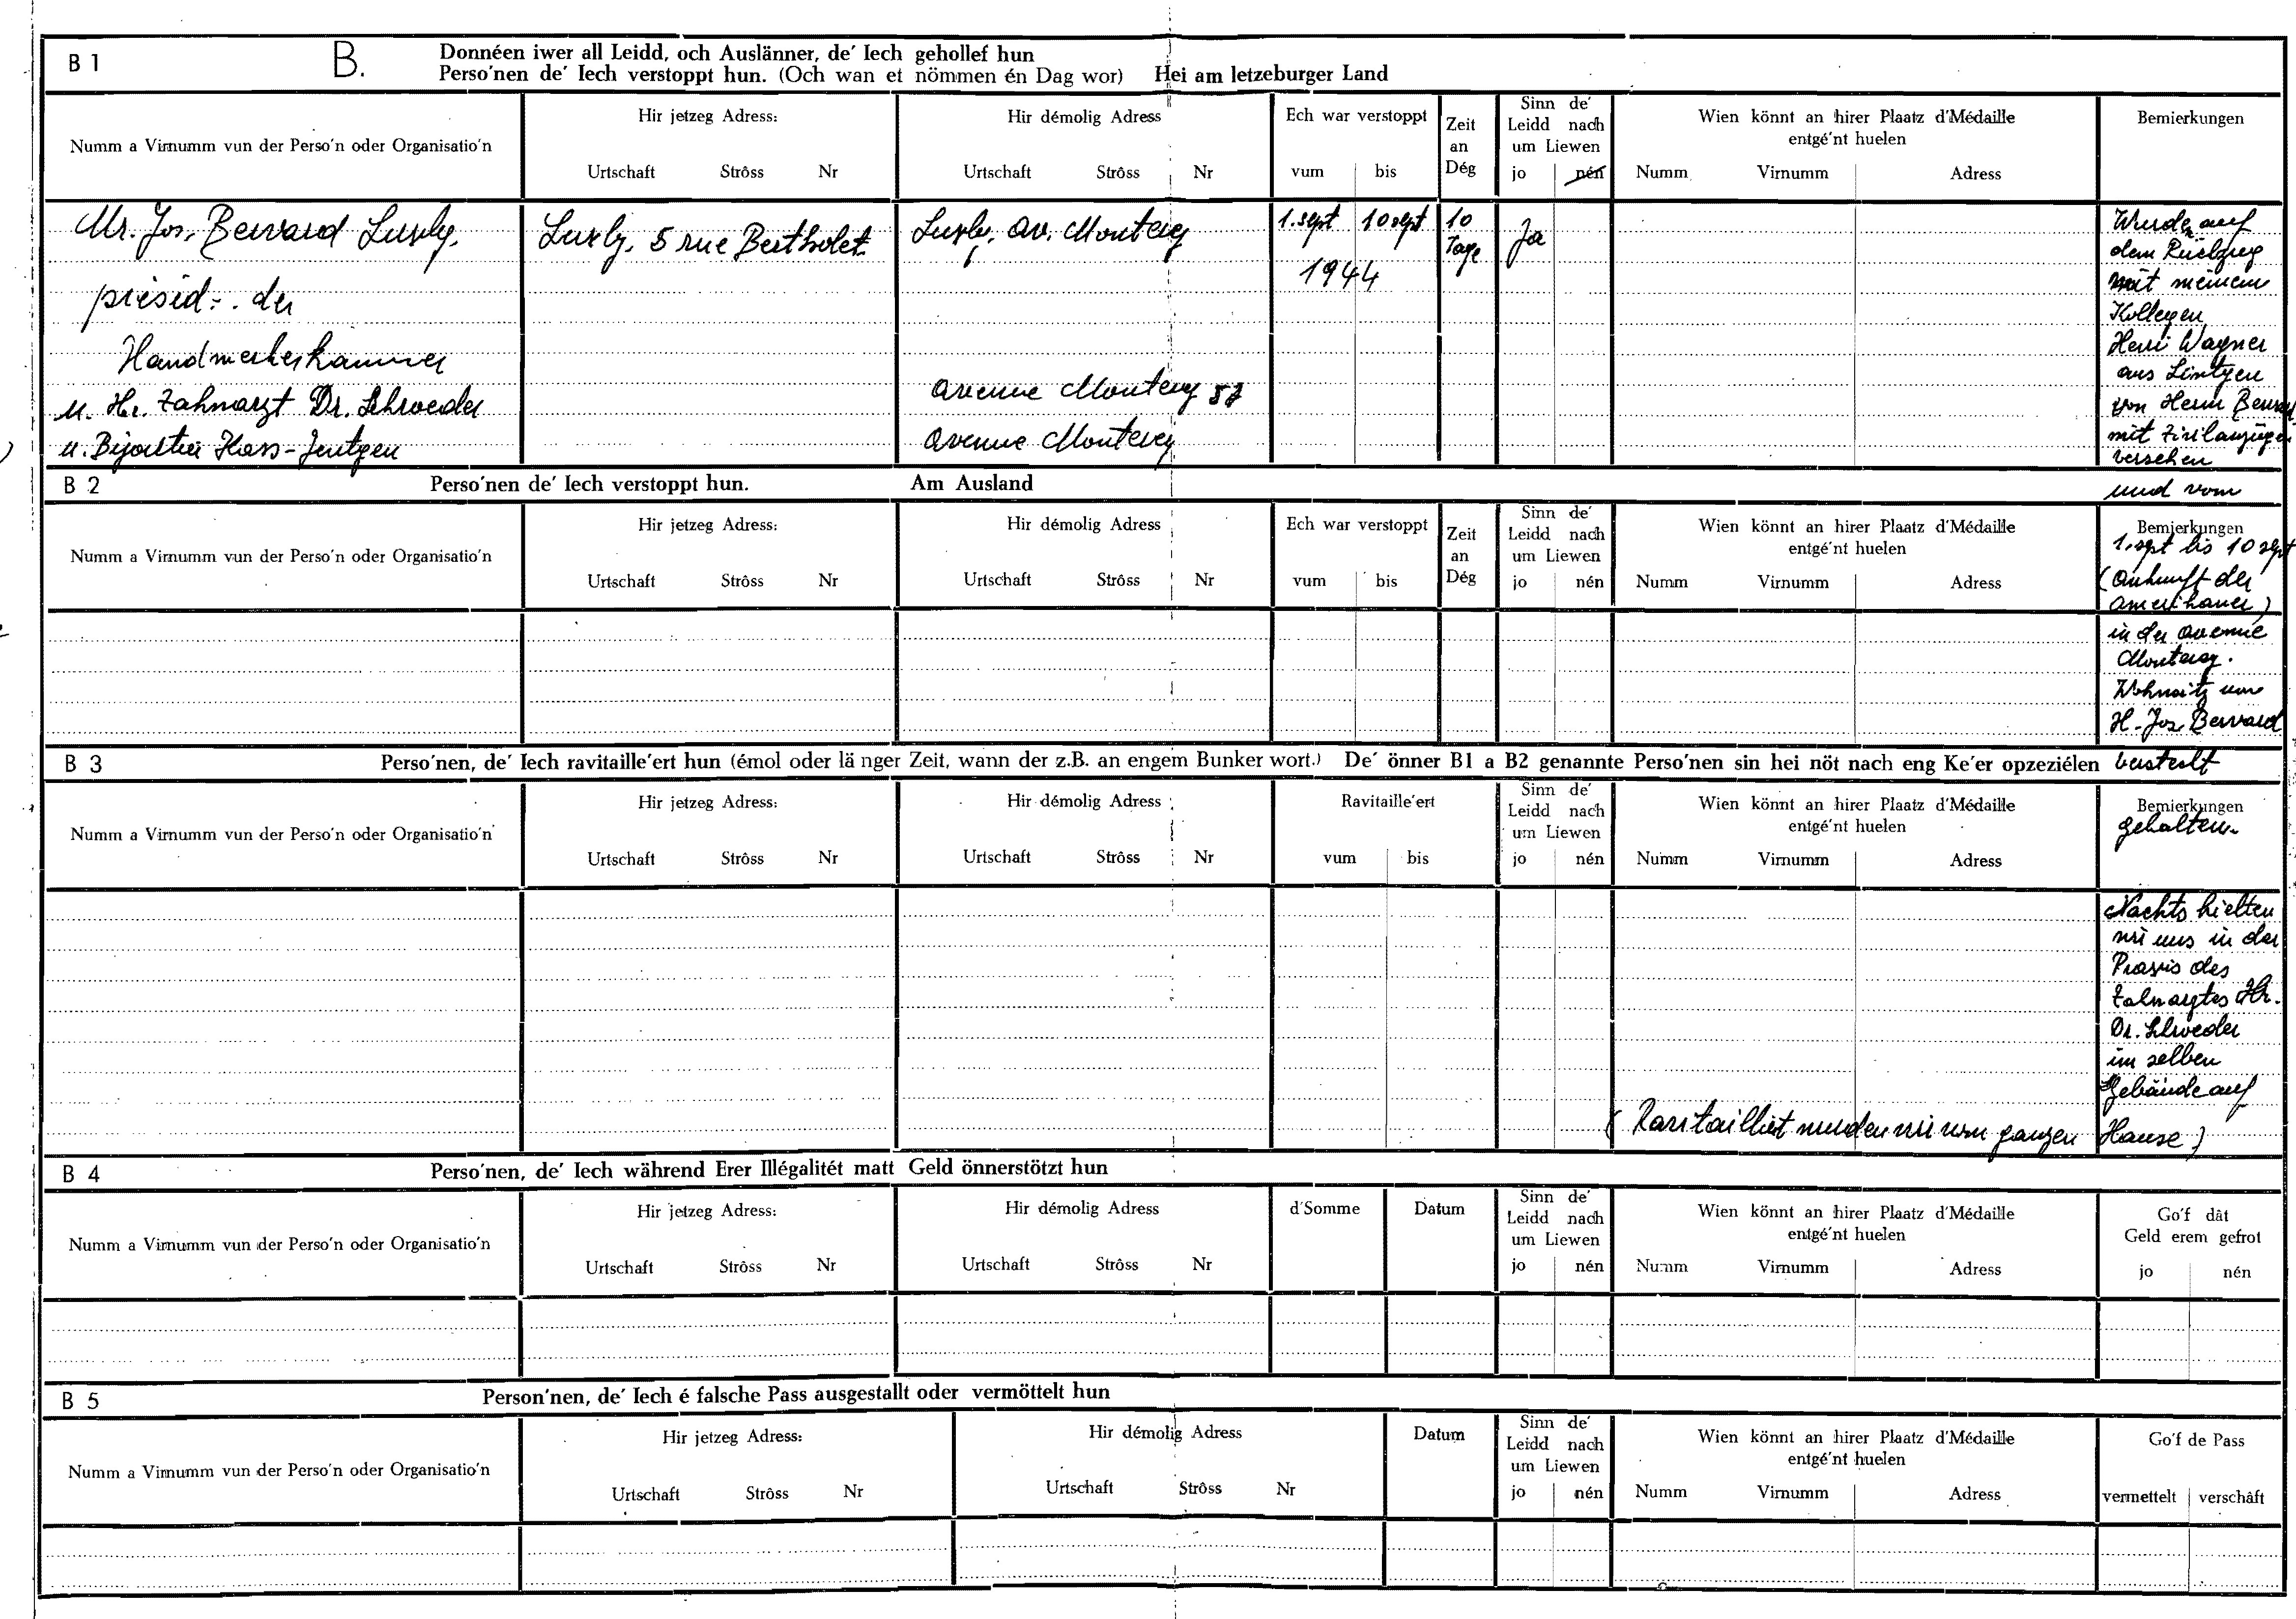 B 1
B.
Donnéen iwer all Leidd, och Auslänner, de' Iech gehollef hun
Perso'nen de' Iech verstoppt hun. (Och wan et nömmen én Dag wor) Hei am letzeburger Land
Numm a Virnumm vun der Perso'n oder Organisatio'n
Hir jetzeg Adress:
Urtschaft Strôss Nr
Hir démolig Adress
Urtschaft Strôss Nr
Ech war verstoppt
vum bis
Zeit
an
Dég
Sinn de'
Leidd nach
um Liewen
jo nén
Wien könnt an hirer Plaatz d'Médaille
entgé'nt huelen
Numm Virnumm Adress
Bemierkungen
Mr. Jos. Bervard Luxbg.
présid. der
Handwerkerkammer
u. Hr. Zahnarzt Dr. Schroeder
u. Bijoutier Kass-Jentgen
Luxbg. 5 rue Bertholet
Luxbg. av. Monterey
avenue Monterey 52
avenue Monterey
1. sept 10 sept
1944
10
Tage
Ja
Wurde auf
dem Rückzug
mit meinem
Kollegen
Henri Wagner
aus Lintgen
von Herrn Bervard
mit Zivilanzügen
versehen
und vom
1. sept bis 10 sept
(Ankunft der
Amerikaner)
in der avenue
Monterey.
Wohnsitz von
H. Jos. Bervard
versteckt
gehalten.
B 2
Perso'nen de' Iech verstoppt hun. Am Ausland
Numm a Virnumm vun der Perso'n oder Organisatio'n
Hir jetzeg Adress:
Urtschaft Strôss Nr
Hir démolig Adress
Urtschaft Strôss Nr
Ech war verstoppt
vum bis
Zeit
an
Dég
Sinn de'
Leidd nach
um Liewen
jo nén
Wien könnt an hirer Plaatz d'Médaille
entgé'nt huelen
Numm Virnumm Adress
Bemierkungen
B 3
Perso'nen, de' Iech ravitaille'ert hun (émol oder länger Zeit, wann der z.B. an engem Bunker wort.) De' önner B1 a B2 genannte Perso'nen sin hei nöt nach eng Ke'er opzeziélen
Numm a Virnumm vun der Perso'n oder Organisatio'n
Hir jetzeg Adress:
Urtschaft Strôss Nr
Hir démolig Adress
Urtschaft Strôss Nr
Ravitaille'ert
vum bis
Sinn de'
Leidd nach
um Liewen
jo nén
Wien könnt an hirer Plaatz d'Médaille
entgé'nt huelen
Numm Virnumm Adress
Bemierkungen
Nachts hielten
wir uns in der
Praxis des
Zahnarztes Hr.
Dr. Schroeder
im selben
Gebäude auf
(Ravitailliert wurden wir vom ganzen Hause)
B 4
Perso'nen, de' Iech während Erer Illégalitét matt Geld önnerstötzt hun
Numm a Virnumm vun der Perso'n oder Organisatio'n
Hir jetzeg Adress:
Urtschaft Strôss Nr
Hir démolig Adress
Urtschaft Strôss Nr
d'Somme
Datum
Sinn de'
Leidd nach
um Liewen
jo nén
Wien könnt an hirer Plaatz d'Médaille
entgé'nt huelen
Numm Virnumm Adress
Go'f dât
Geld erem gefrot
jo nén
B 5
Person'nen, de' Iech é falsche Pass ausgestallt oder vermöttelt hun
Numm a Virnumm vun der Perso'n oder Organisatio'n
Hir jetzeg Adress:
Urtschaft Strôss Nr
Hir démolig Adress
Urtschaft Strôss Nr
Datum
Sinn de'
Leidd nach
um Liewen
jo nén
Wien könnt an hirer Plaatz d'Médaille
entgé'nt huelen
Numm Virnumm Adress
Go'f de Pass
vermettelt verschâft